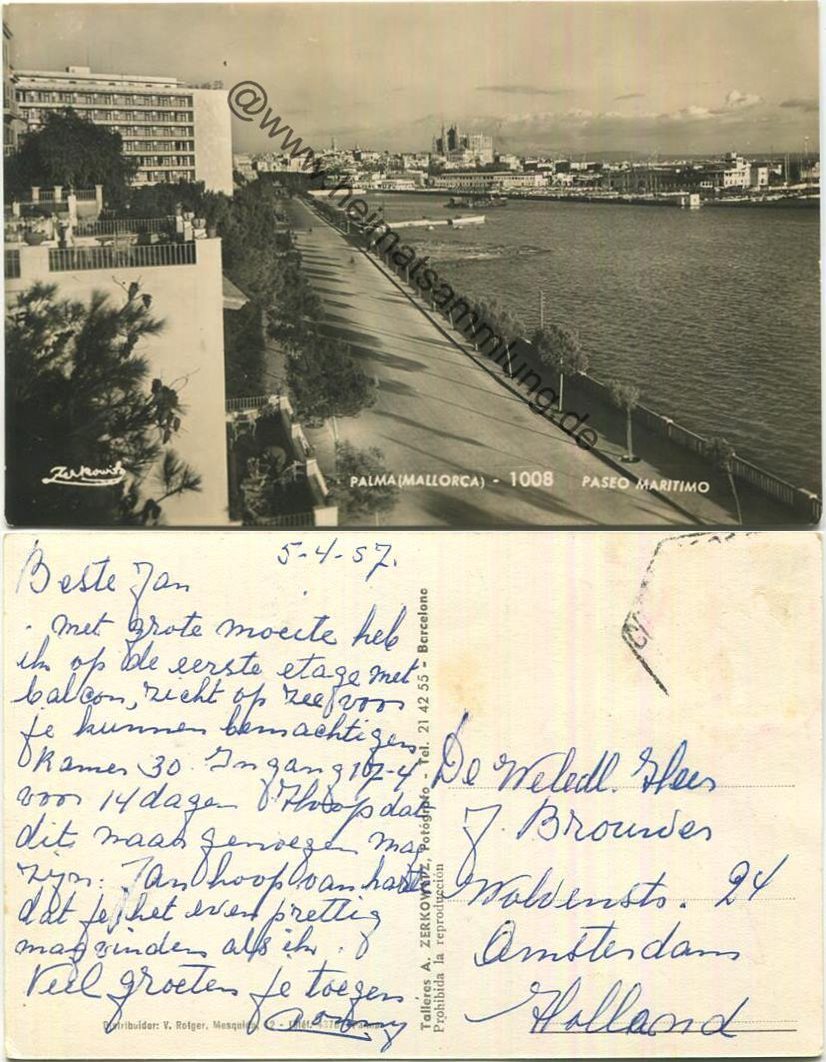 @www.heimatsammlung.de
Zerkowitz
PALMA (MALLORCA) - 1008 PASEO MARITIMO
5-4-57.
Beste Jan
Met grote moeite heb
ik op de eerste etage met
balcon, zicht op zee voor
je kunnen bemachtigen
Kamer 30. Ingang 17-4
voor 14 dagen. Hoop dat
dit naar genoegen mag
zijn. Jan hoop van harte
dat je het even prettig
mag vinden als ik.
Veel groeten je toegen
Talleres A. ZERKOWITZ, Fotógrafo - Tel. 21 42 55 - Barcelona
Prohibida la reproducción
De Weledl. Heer
J. Brouwer
Wolvenstr. 24
Amsterdam
Holland
Distribuidor: V. Rotger, Mesquida, 12 - Teléf.